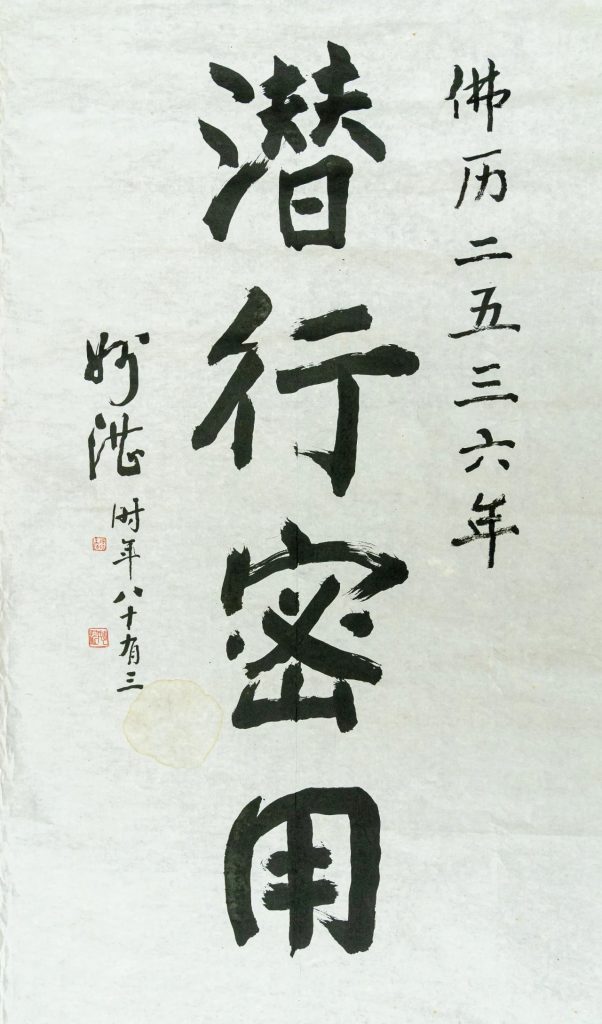 佛历二五三六年
潜行密用
妙湛时年八十有三